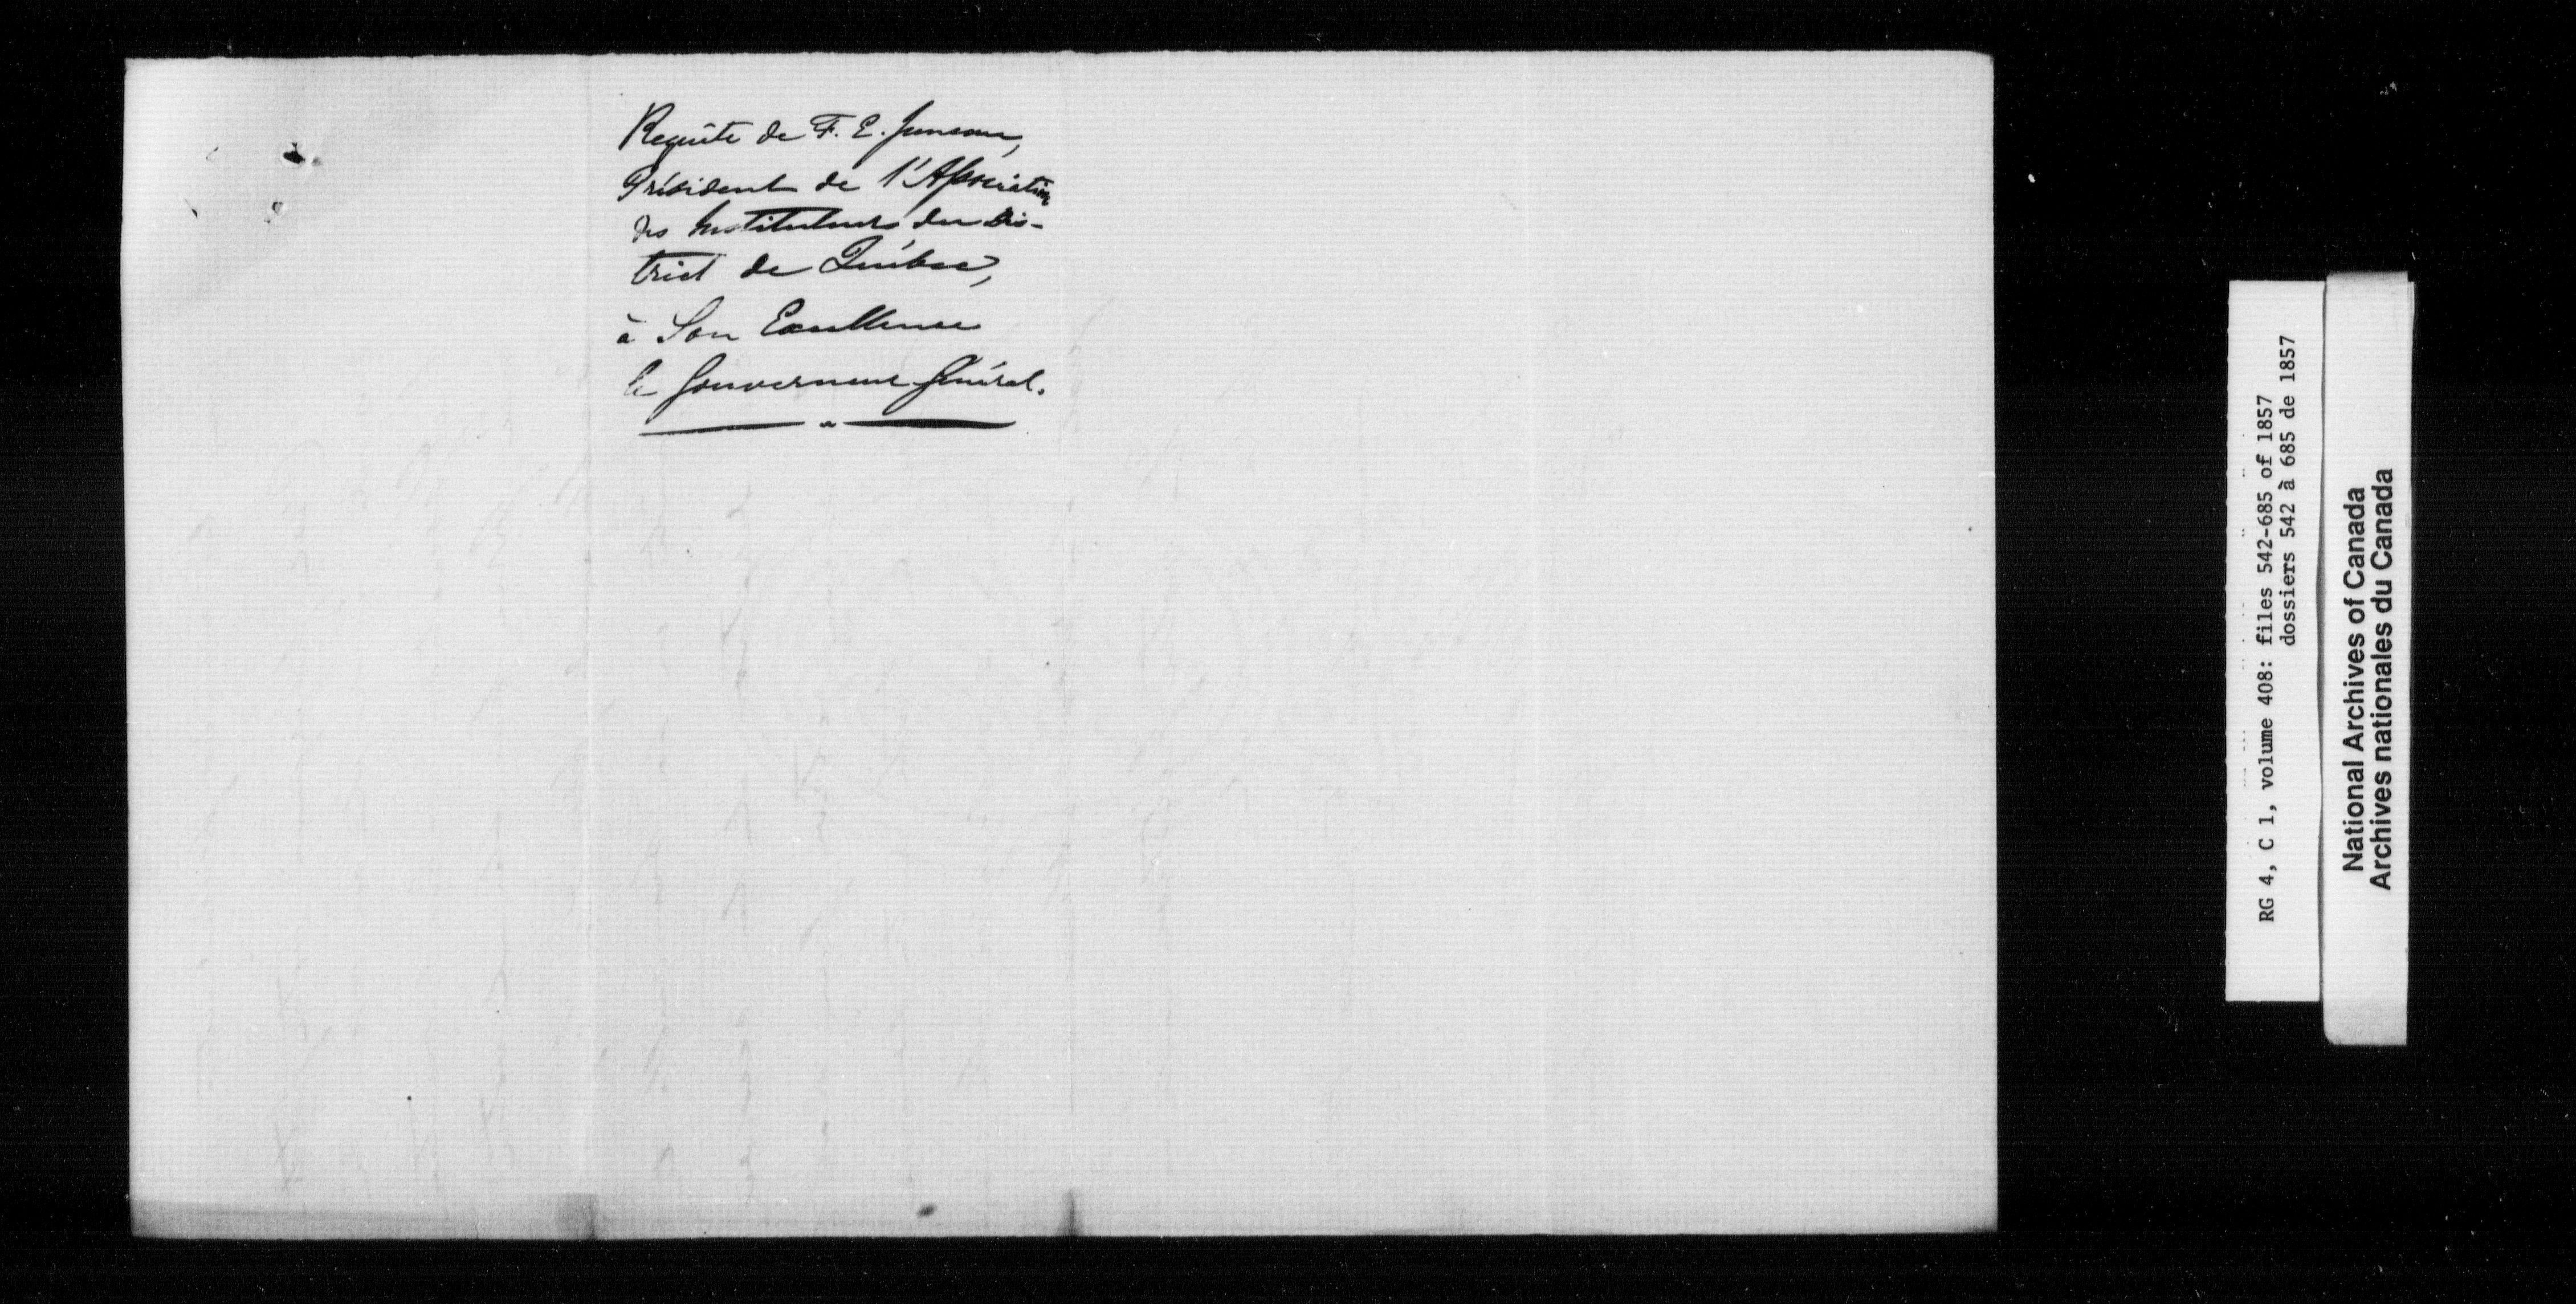 Requête de F. E. Juneau,
Président de l'Association
des Instituteurs du Dis-
trict de Québec,
à Son Excellence
le Gouverneur Général.
RG 4, C 1, volume 408: files 542-685 of 1857
dossiers 542 à 685 de 1857
National Archives of Canada
Archives nationales du Canada